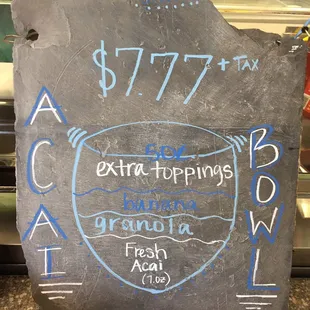 $7.77 + TAX
ACAI
BOWL
extra toppings
banana
granola
Fresh
Acai
(7.0z)